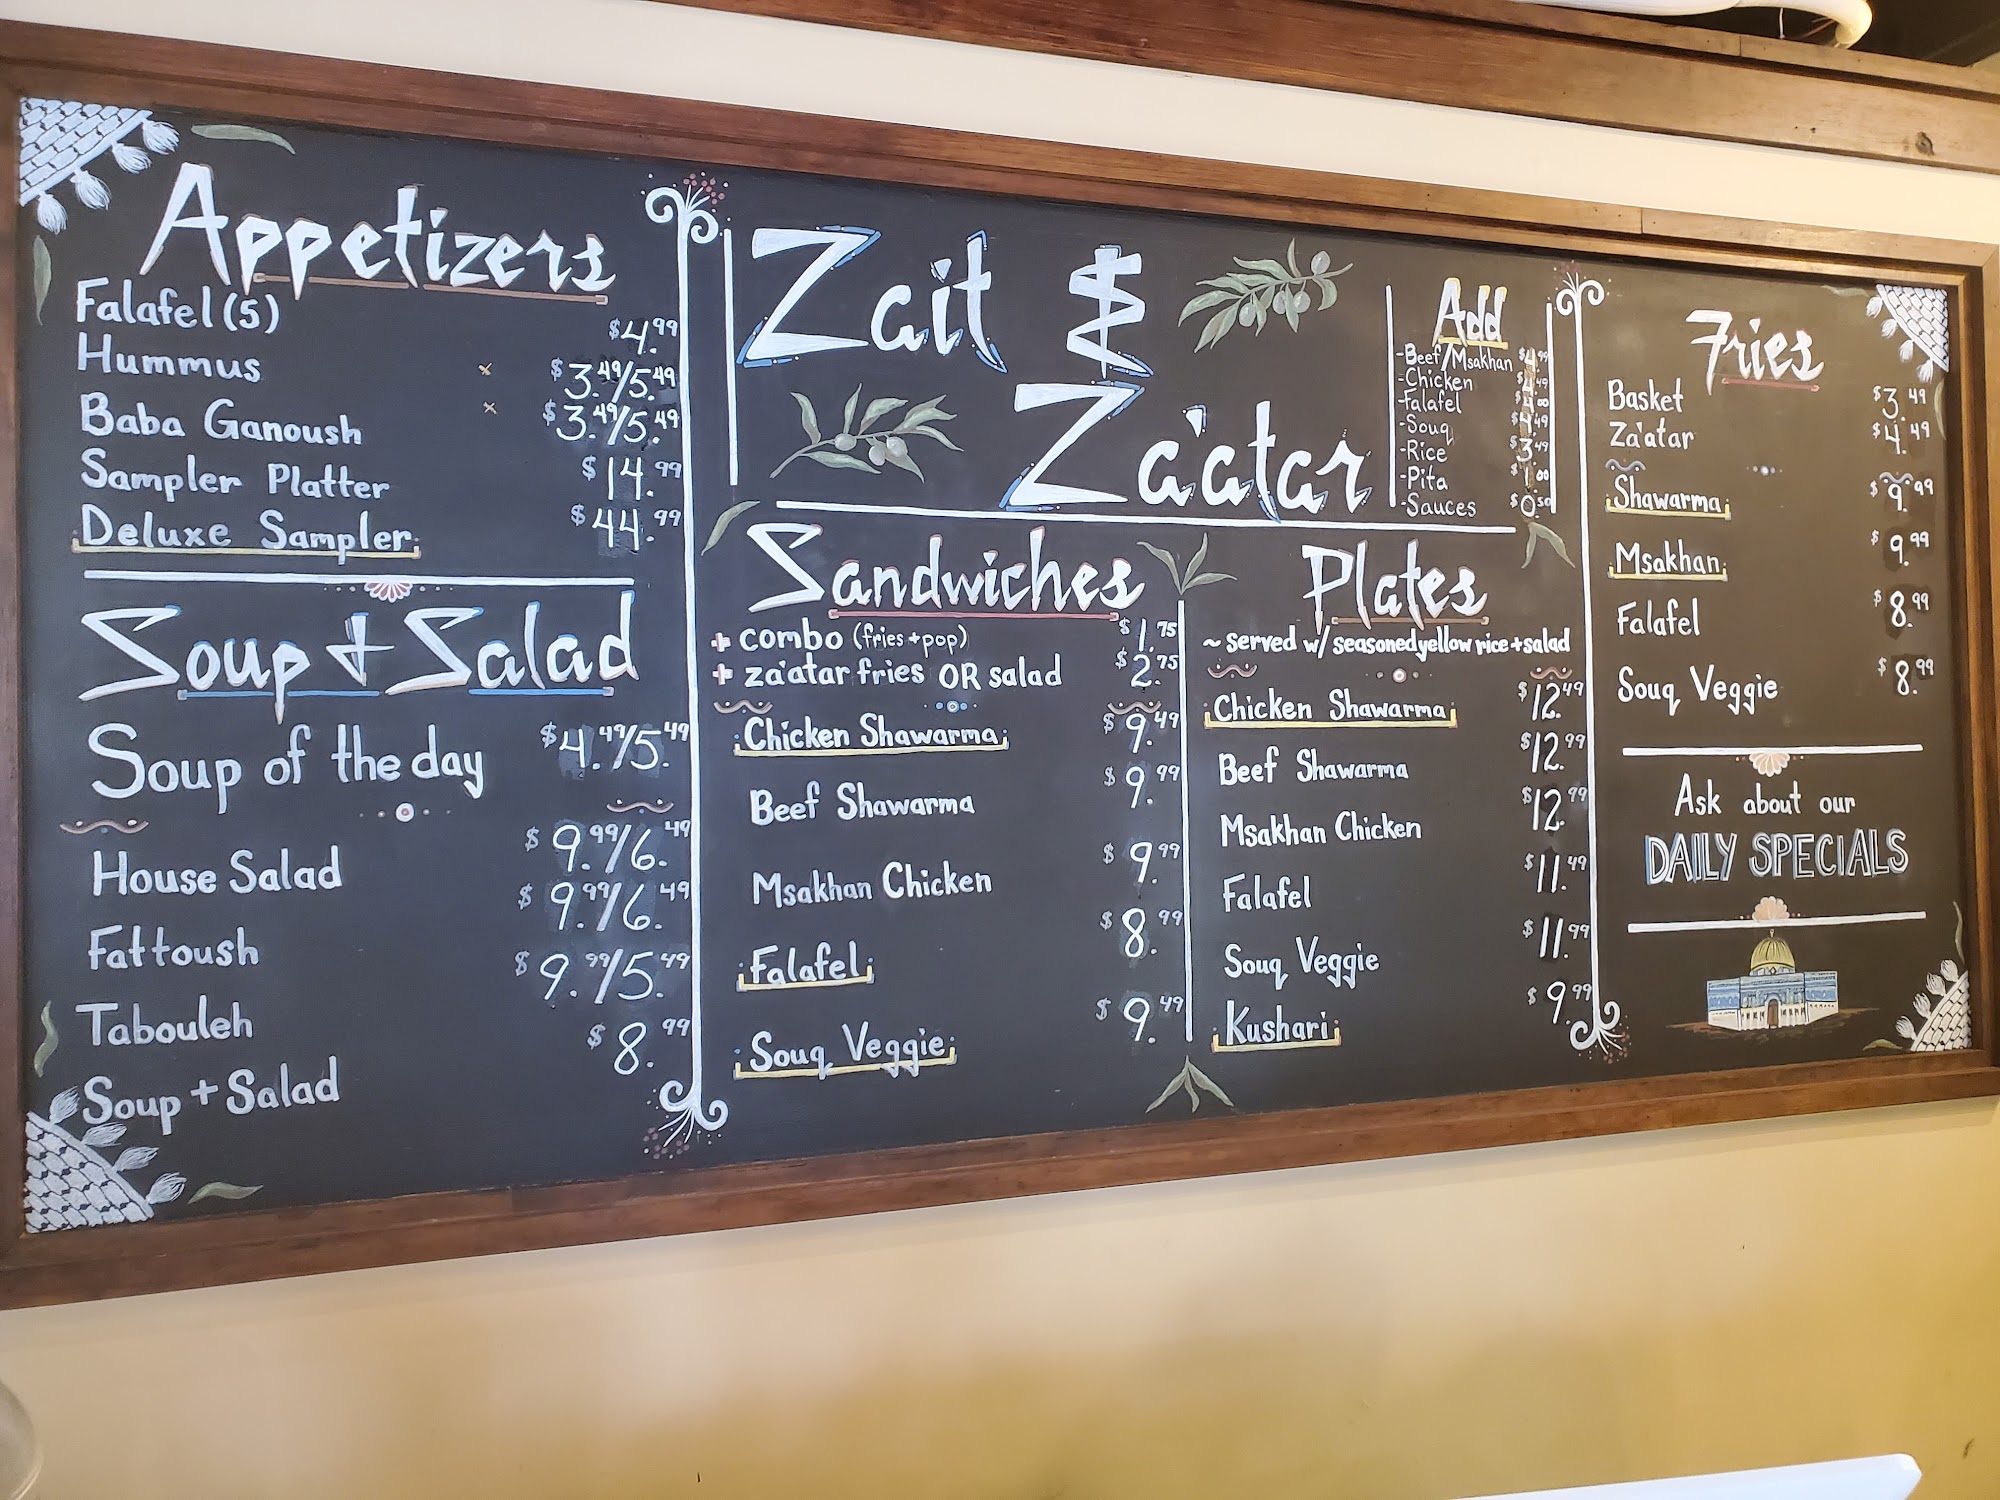 Appetizers
Falafel (5) $4.99
Hummus $3.49/5.49
Baba Ganoush $3.49/5.49
Sampler Platter $14.99
Deluxe Sampler $44.99
Soup & Salad
Soup of the day $4.49/5.49
House Salad $9.99/6.49
Fattoush $9.99/6.49
Tabouleh $9.99/5.49
Soup + Salad $8.99
Zait &
Za'atar
Add
-Beef/Msakhan $4.99
-Chicken $4.49
-Falafel $4.00
-Souq $4.49
-Rice $3.49
-Pita $1.00
-Sauces $0.50
Sandwiches
+ combo (fries + pop) $1.75
+ za'atar fries OR salad $2.75
Chicken Shawarma $9.49
Beef Shawarma $9.99
Msakhan Chicken $9.99
Falafel $8.99
Souq Veggie $9.49
Plates
~ served w/ seasoned yellow rice + salad
Chicken Shawarma $12.49
Beef Shawarma $12.99
Msakhan Chicken $12.99
Falafel $11.49
Souq Veggie $11.99
Kushari $9.99
Fries
Basket $3.49
Za'atar $4.49
Shawarma $9.99
Msakhan $9.99
Falafel $8.99
Souq Veggie $8.99
Ask about our
DAILY SPECIALS